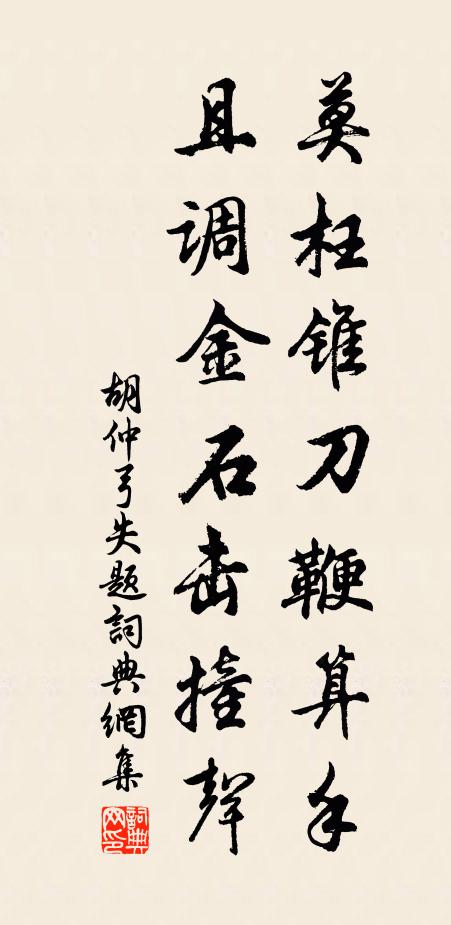 莫枉锥刀鞭算手
且调金石击撞声
胡仲弓失题詞典網集
詞典網印